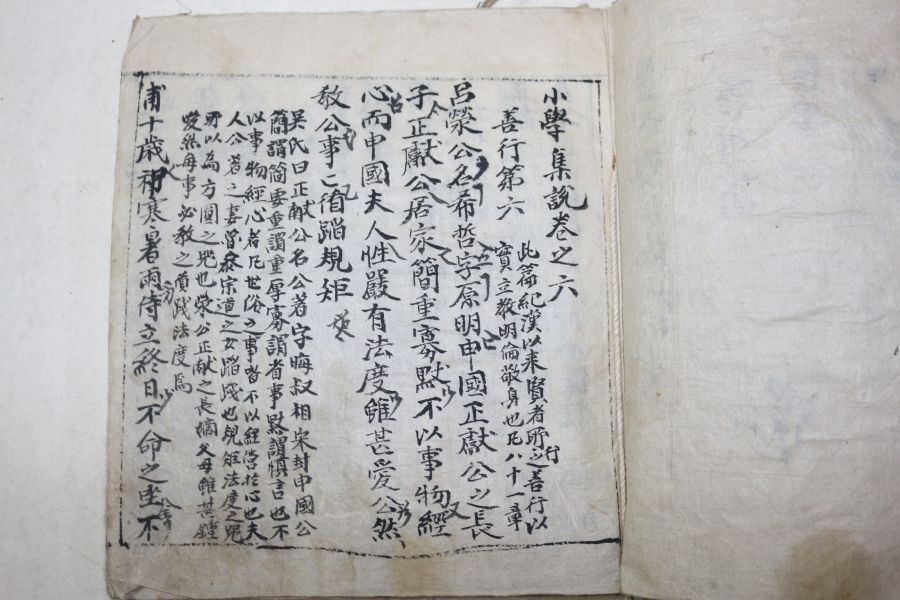 小學集說卷之六
善行第六
此篇紀漢以來賢者所之善行以
行
實立敎明倫敬身也凡八十一章
呂滎公名希哲字原明申國正獻公之長
子正獻公居家簡重寡默不以事物經
心而申國夫人性嚴有法度雖甚愛公然
敎公事〻循蹈規矩
吳氏曰正献公名公著字晦叔相宋封申國公
簡謂簡要重謂重厚寡謂省事默謂愼言也不
以事物經心者凡世俗之事皆不以經營於心也夫
人公著之妻曾參宗道之女蹈踐也規矩法度之器
所以為方圓之器也滎公正献之長嫡父母雖甚鍾
愛然每事必敎之循践法度焉
甫十歲祁寒暑雨侍立終日不命之坐不